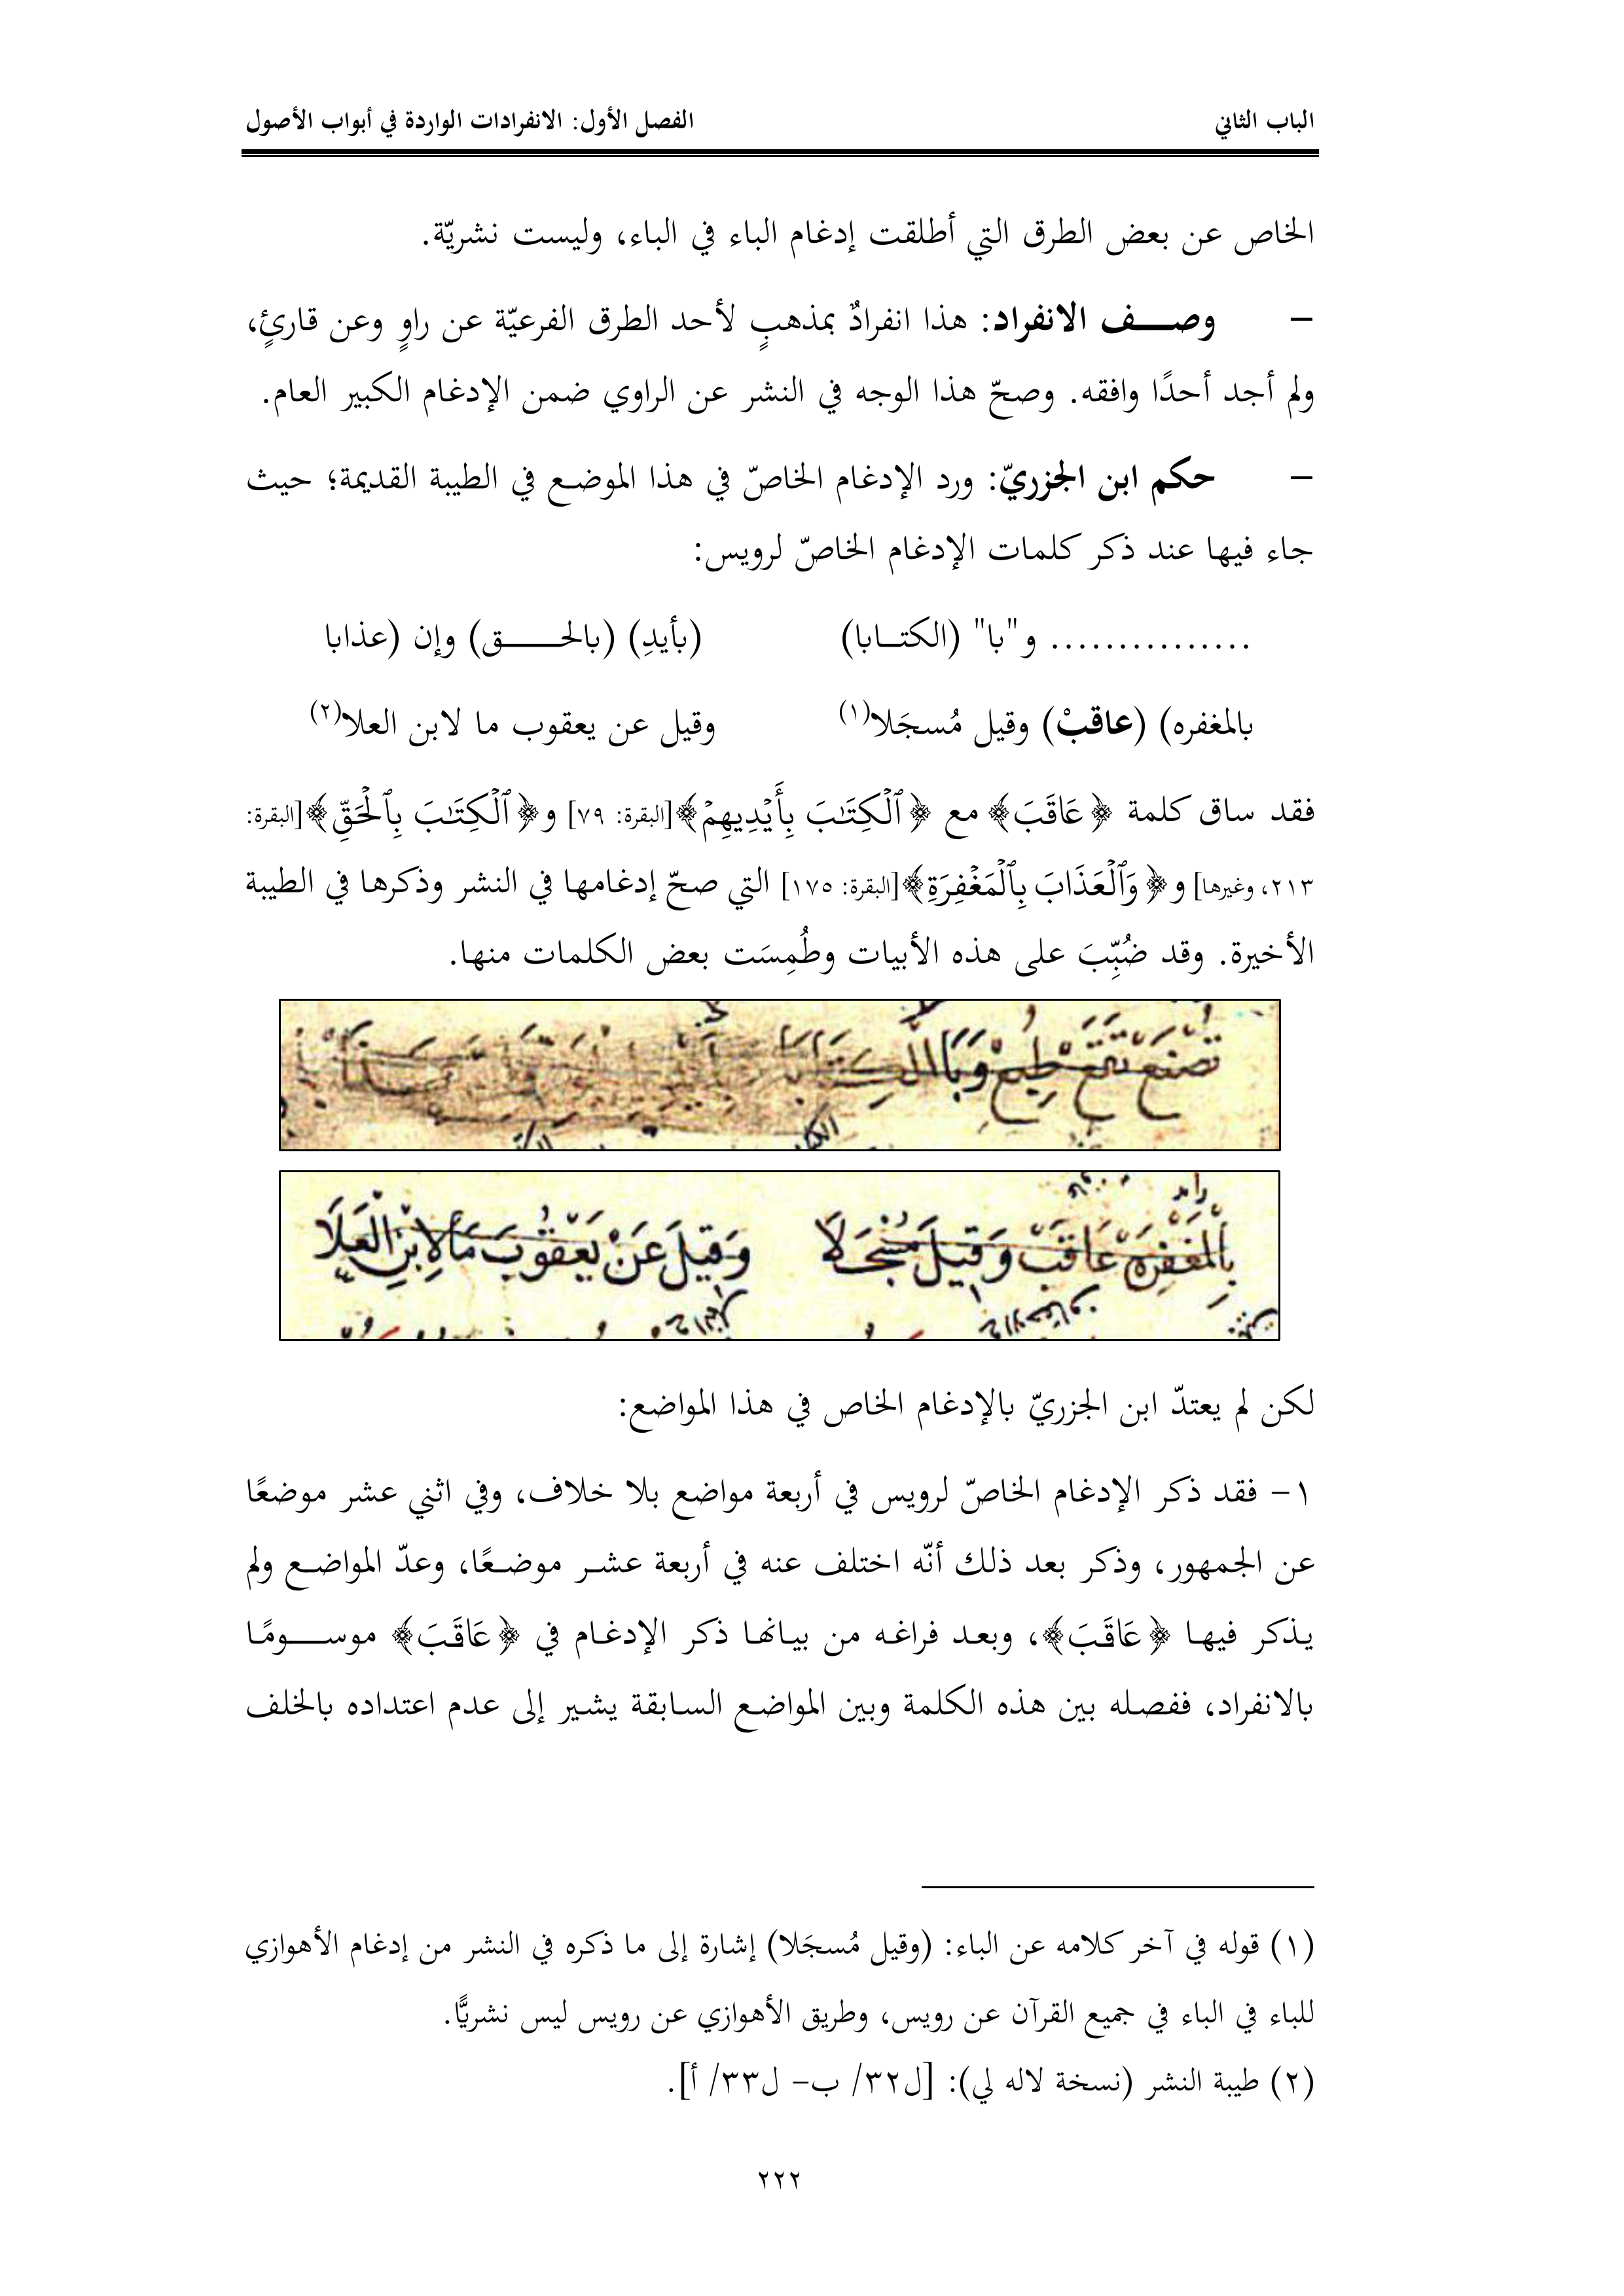 الباب الثاني
الفصل الأول: الانفرادات الواردة في أبواب الأصول
الخاص عن بعض الطرق التي أطلقت إدغام الباء في الباء، وليست نشريّة.
– وصـــف الانفراد: هذا انفرادٌ بمذهبٍ لأحد الطرق الفرعيّة عن راوٍ وعن قارئٍ،
ولم أجد أحدًا وافقه. وصحّ هذا الوجه في النشر عن الراوي ضمن الإدغام الكبير العام.
– حكم ابن الجزريّ: ورد الإدغام الخاصّ في هذا الموضع في الطيبة القديمة؛ حيث
جاء فيها عند ذكر كلمات الإدغام الخاصّ لرويس:
............... و"با" (الكتـابا) (بأيدِ) (بالحـــــق) وإن (عذابا
بالمغفره) (عاقبْ) وقيل مُسجَلا(١) وقيل عن يعقوب ما لابن العلا(٢)
فقد ساق كلمة ﴿عَاقَبَ﴾ مع ﴿ٱلْكِتَٰبَ بِأَيْدِيهِمْ﴾[البقرة: ٧٩] و﴿ٱلْكِتَٰبَ بِٱلْحَقِّ﴾[البقرة:
٢١٣، وغيرها] و﴿وَٱلْعَذَابَ بِٱلْمَغْفِرَةِ﴾[البقرة: ١٧٥] التي صحّ إدغامها في النشر وذكرها في الطيبة
الأخيرة. وقد ضُبِّبَ على هذه الأبيات وطُمِسَت بعض الكلمات منها.
تصنع تقع طبع وَبَا الكتابا
بِالمَغْفِرَه عَاقَبْ وَقِيلَ مُسْجَلَا وَقِيلَ عَنْ يَعْقُوبَ مَا لِابْنِ الْعَلَا
لكن لم يعتدّ ابن الجزريّ بالإدغام الخاص في هذا المواضع:
١– فقد ذكر الإدغام الخاصّ لرويس في أربعة مواضع بلا خلاف، وفي اثني عشر موضعًا
عن الجمهور، وذكر بعد ذلك أنّه اختلف عنه في أربعة عشـر موضـعًا، وعدّ المواضـع ولم
يذكر فيها ﴿عَاقَبَ﴾، وبعد فراغه من بيانها ذكر الإدغام في ﴿عَاقَبَ﴾ موســـومًا
بالانفراد، ففصله بين هذه الكلمة وبين المواضع السابقة يشير إلى عدم اعتداده بالخلف
(١) قوله في آخر كلامه عن الباء: (وقيل مُسجَلا) إشارة إلى ما ذكره في النشر من إدغام الأهوازي
للباء في الباء في جميع القرآن عن رويس، وطريق الأهوازي عن رويس ليس نشريًّا.
(٢) طيبة النشر (نسخة لاله لي): [ل٣٢/ ب– ل٣٣/ أ].
٢٢٢